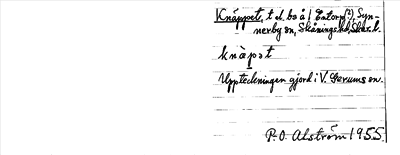 Knäppet, t.d. bo å (Entorp?), Syn-
nerby sn, Skånings hd, Skar. l.
knäpət
Uppteckningen gjord i V. Gerums sn.
P.O. Alström 1955